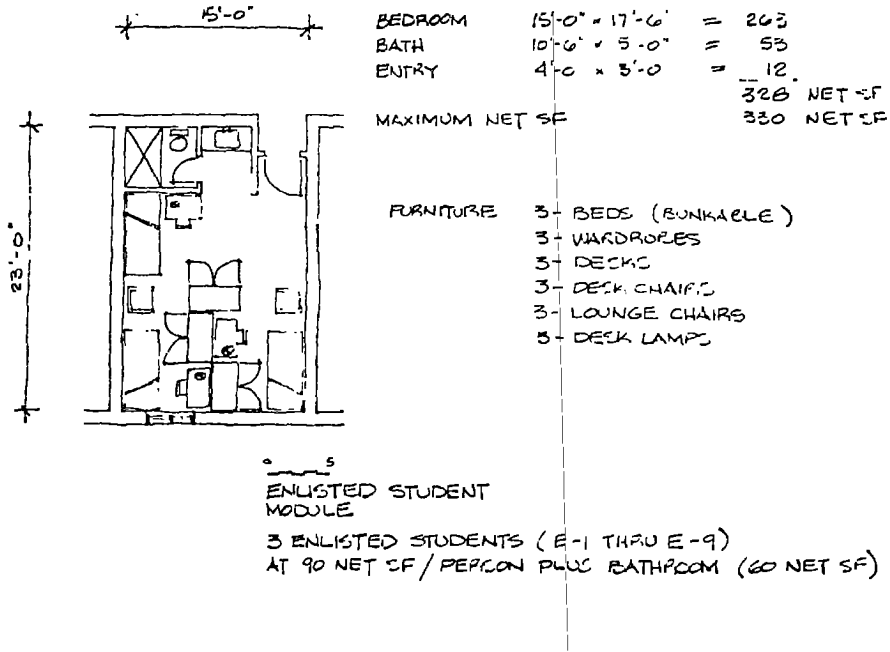 15'-0"
BEDROOM 15'-0" × 17'-6" = 263
BATH 10'-6" × 5'-0" = 53
ENTRY 4'-0 × 3'-0 = 12
328 NET SF
MAXIMUM NET SF 330 NET SF
23'-0"
FURNITURE 3- BEDS (BUNKABLE)
3- WARDROBES
3- DESKS
3- DESK CHAIRS
3- LOUNGE CHAIRS
3- DESK LAMPS
0 5
ENLISTED STUDENT
MODULE
3 ENLISTED STUDENTS (E-1 THRU E-9)
AT 90 NET SF/PERSON PLUS BATHROOM (60 NET SF)